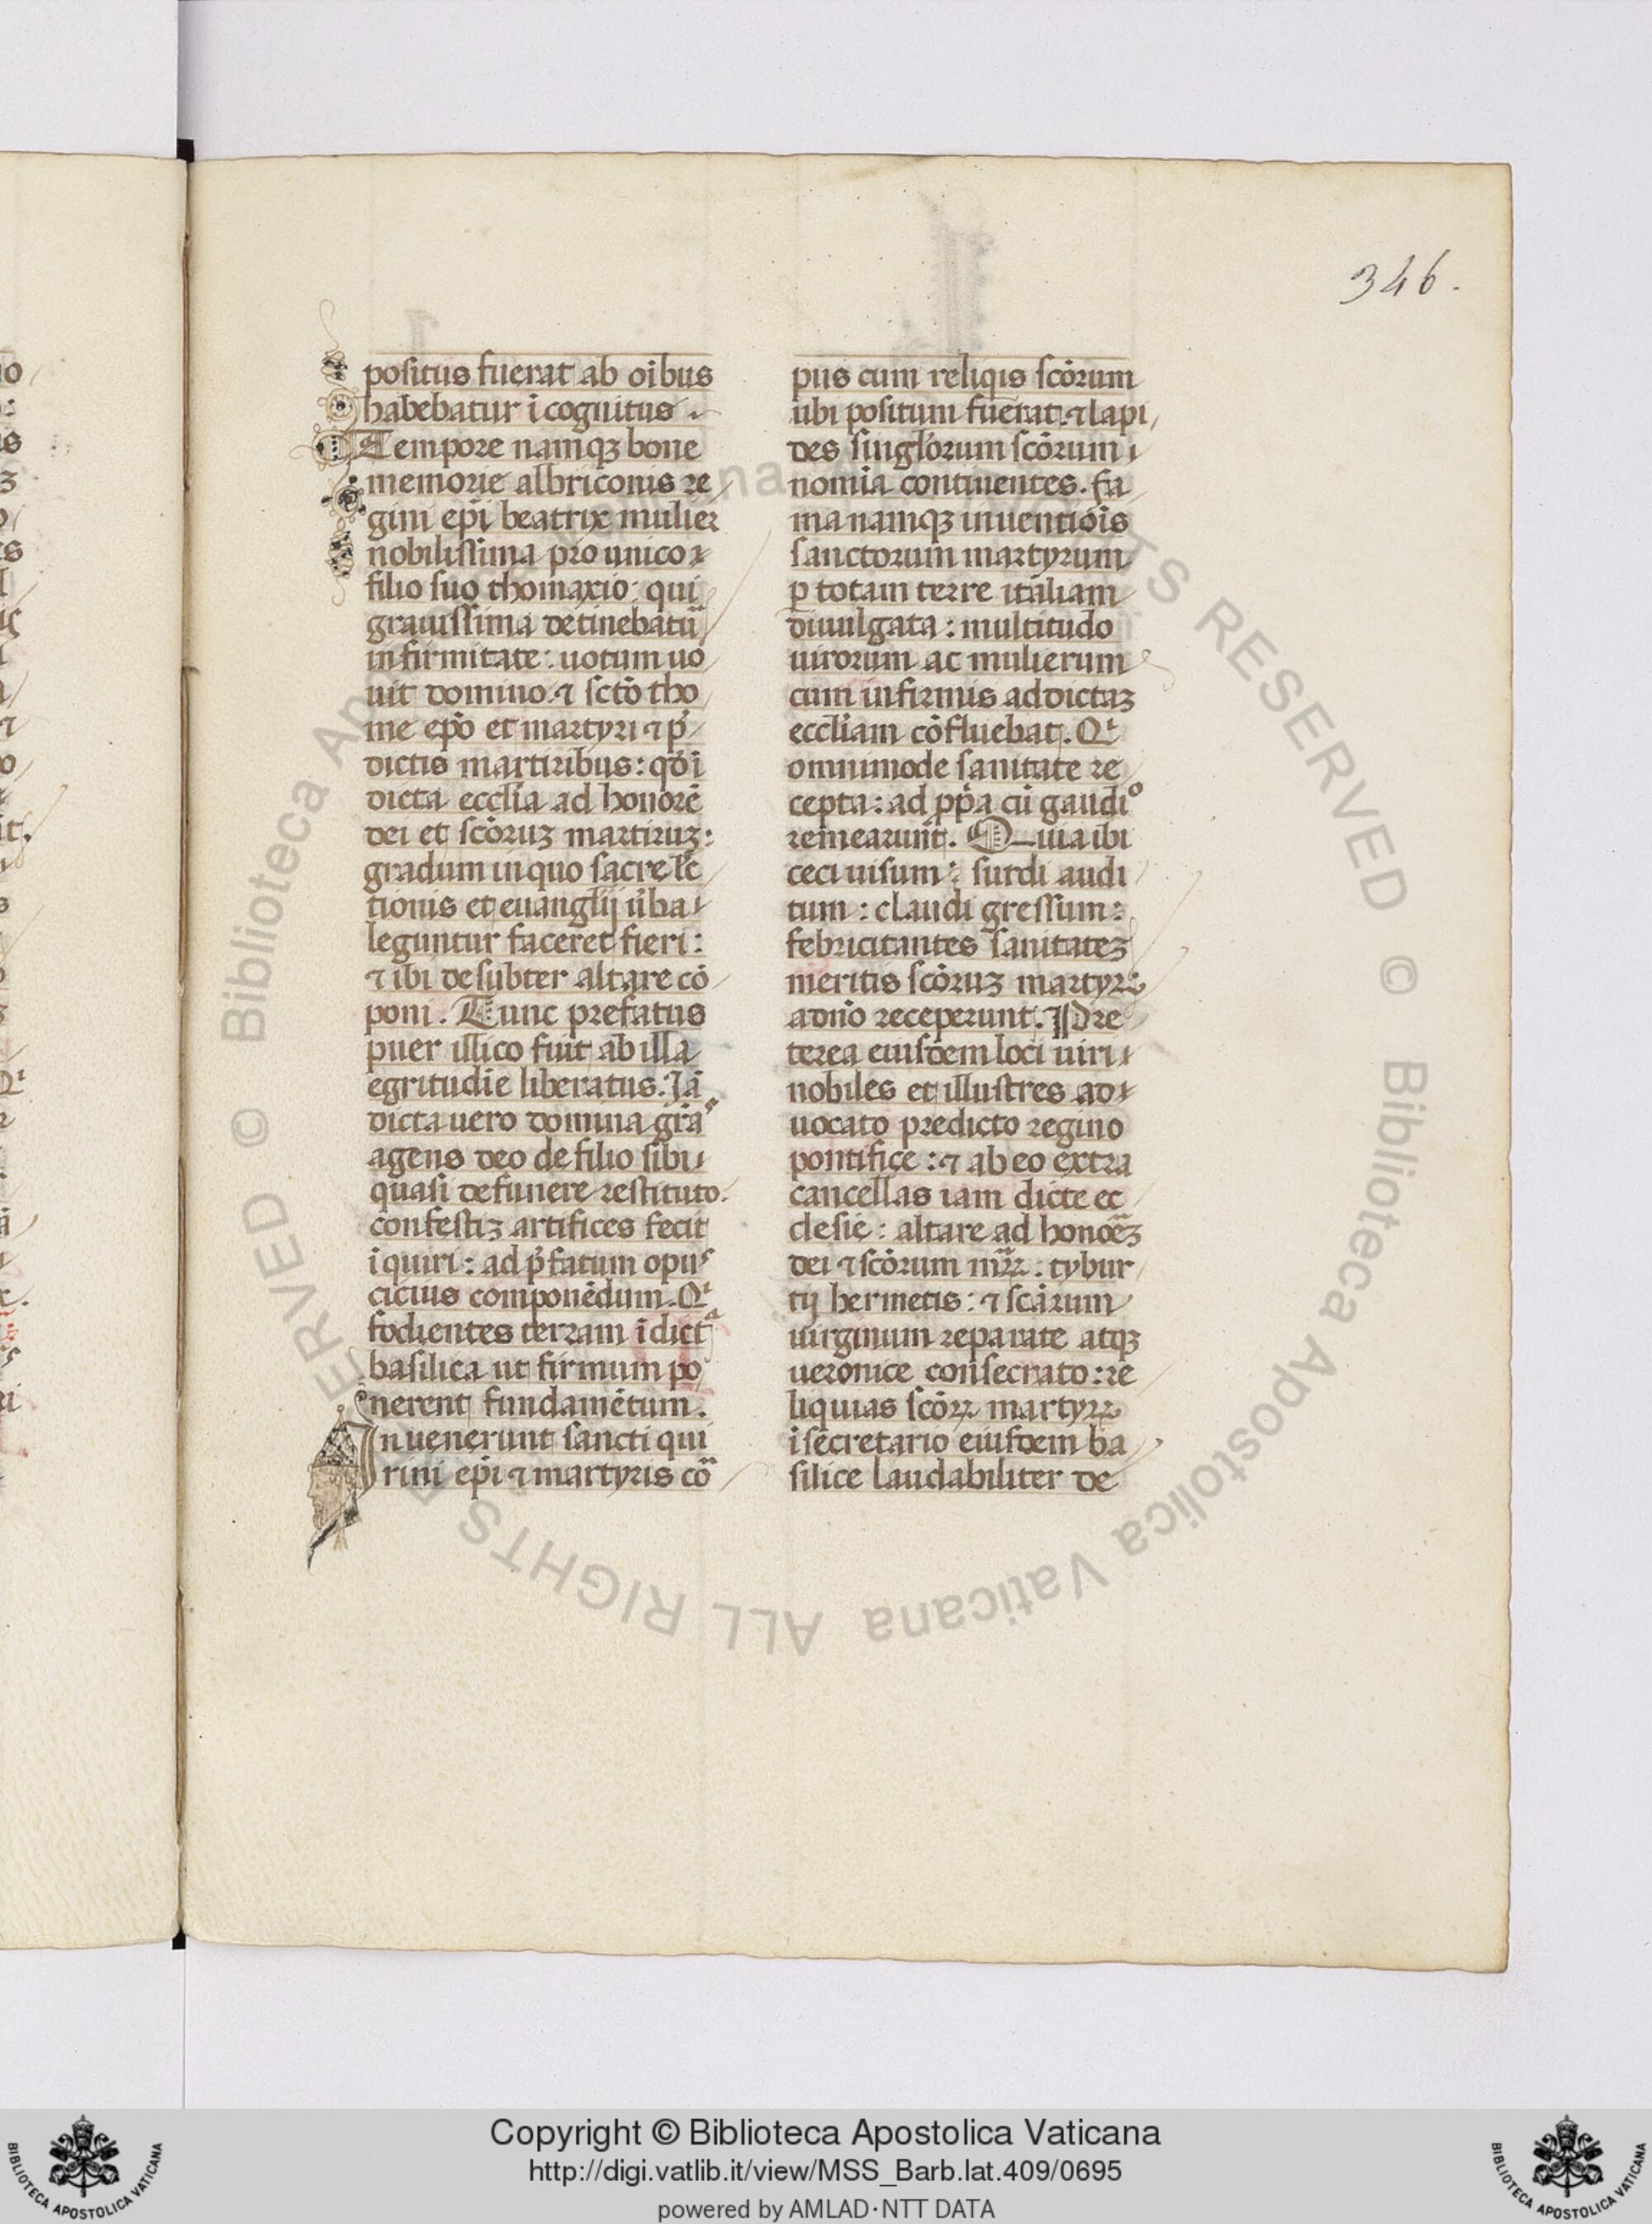 346.
positus fuerat ab oības
habebatur ī cognitus
Tempore namqꝫ bone
memorie albriconis re
gini ep̄i beatrix mulier
nobilissima pro unico
filio suo thomaxio: qui
grauissima detinebatū
infirmitate: uotum uo
uit domino. ⁊ sctō tho
me ep̄o et martyri ⁊ p̄
dictis martiribus: qd̄ ī
dicta eccl̄ia ad honorē
dei et scōruꝫ martiruꝫ:
gradum in quo sacre lc̄
tionis et euanglīj ūba
leguntur faceret fieri:
⁊ ibi desubter altare cō
poni. Tunc prefatus
puer illico fuit ab illa
egritudīe liberatus. Iā
dicta uero domina grā
agens deo de filio sibi
quasi defunere restituto.
confestiꝫ artifices fecit
īquiri: ad p̄fatum opus
cicius componēdum. Qͥ
fodientes terram ī dicta
basilica ut firmum po
nerent fundamētum.
Inuenerunt sancti qui
rini ep̄i ⁊ martyris cō
pus cum reliqis scōrum
ubi positum fuerat: ⁊ lapi
des singl̄orum scōrum
nomīa continentes. fa
ma namqꝫ inuentiōis
sanctorum martyrum
ꝑ totam terre italiam
diuulgata: multitudo
uirorum ac mulierum
cum infirmis ad dictaꝫ
eccl̄iam cōfluebat. Qͥ
omnimode sanitate re
cepta: ad pp̄a cū gaudiº
remearunt. Quia ibi
ceci uisum: surdi audi
tum: claudi gressum:
febricitantes sanitateꝫ
meritis scōruꝫ martyrꝫ
a dn̄o receperunt. Pre
terea eiusdem loci uiri
nobiles et illustres ad
uocato predicto regino
pontifice: ⁊ ab eo extra
cancellas iam dicte ec
clesie: altare ad honoēꝫ
dei ⁊ scōrum mr̄ꝝ: tybur
tij hermetis: ⁊ scārum
uirginum reparate atqꝫ
ueronice consecrato: re
liquias scōꝝ martyrꝝ
ī secretario eiusdem ba
silice laudabiliter de
Copyright © Biblioteca Apostolica Vaticana
http://digi.vatlib.it/view/MSS_Barb.lat.409/0695
powered by AMLAD·NTT DATA
BIBLIOTECA APOSTOLICA VATICANA
BIBLIOTECA APOSTOLICA VATICANA
© Biblioteca Apostolica Vaticana ALL RIGHTS RESERVED © Biblioteca Apostolica Vaticana ALL RIGHTS RESERVED